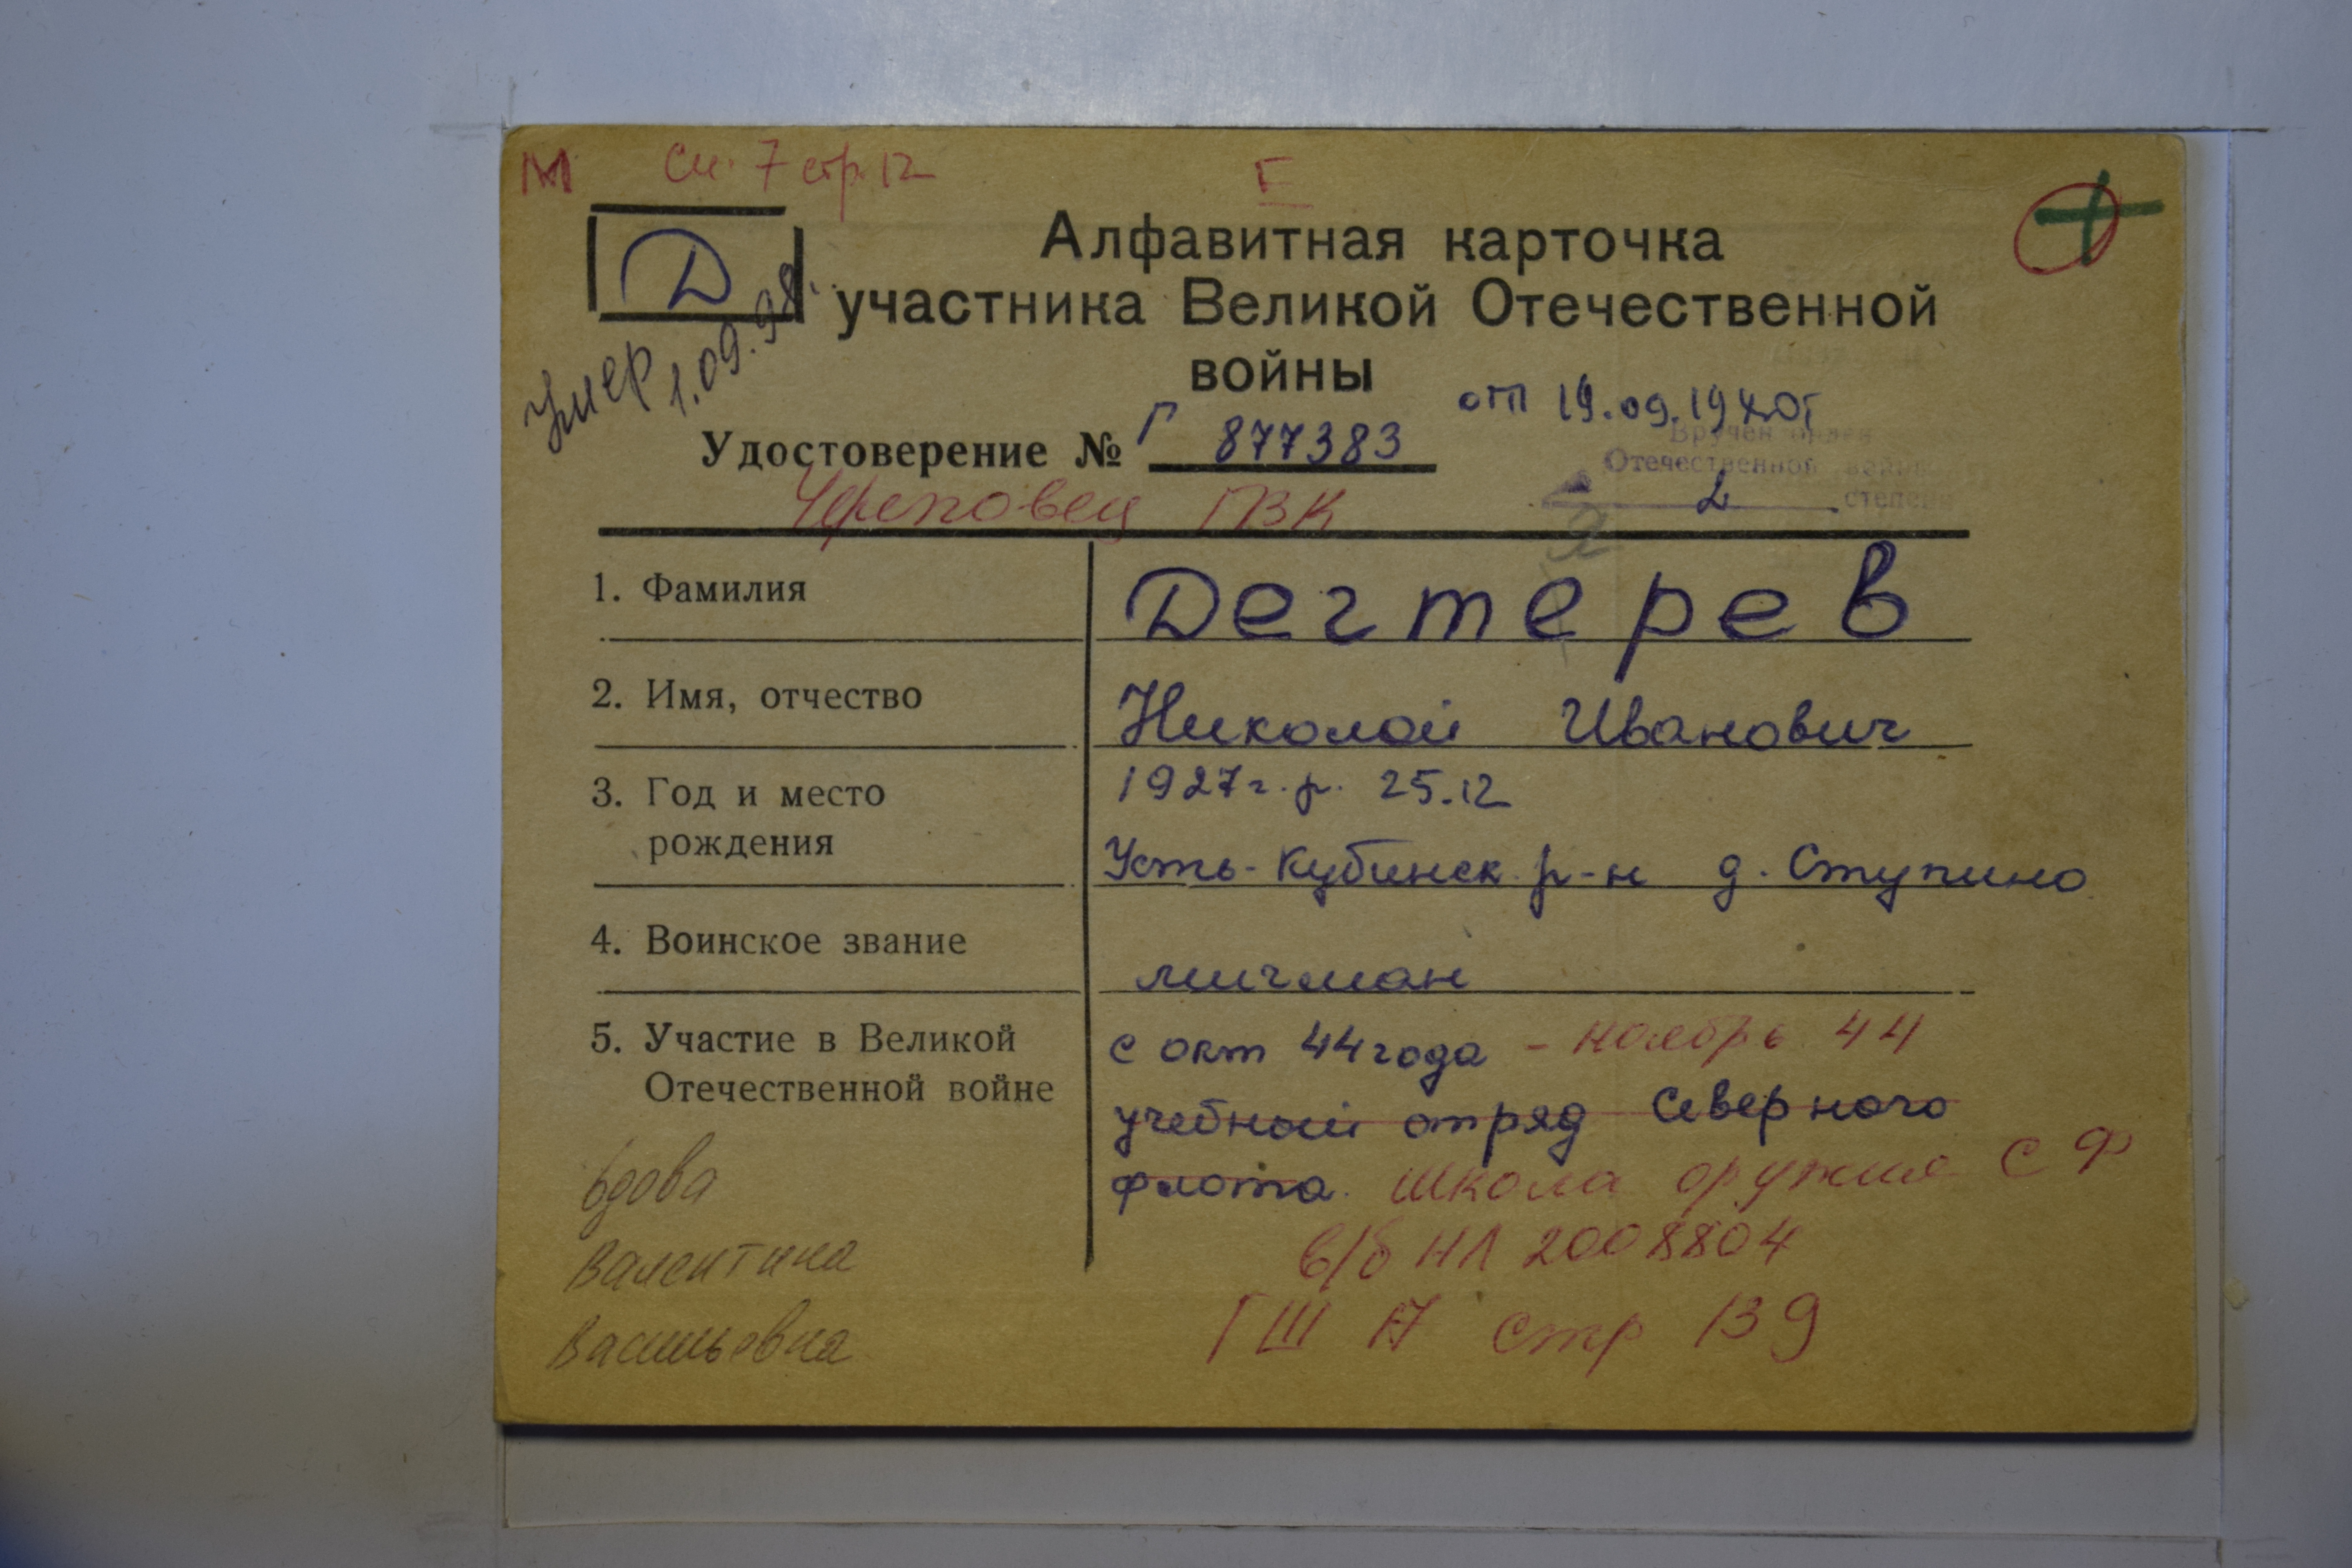 М см. 7 стр. 12 Г
Д
Умер 1.09.98.
Алфавитная карточка
участника Великой Отечественной
войны
от 19.09.19
Удостоверение № Г 877383
Вручен орден
Отечественной войны
2 степени
Череповец ГВК
1. Фамилия Дегтерев
я
2. Имя, отчество Николай Иванович
3. Год и место 1927г.р. 25.12
рождения Усть-Кубинск. р-н д. Ступино
4. Воинское звание мичман
5. Участие в Великой с окт 44 года - ноябрь 44
Отечественной войне учебный отряд Северного
флота. школа оружия СФ
в/б НЛ 2008804
ГШ 17 стр 139
вдова
Валентина
Васильевна